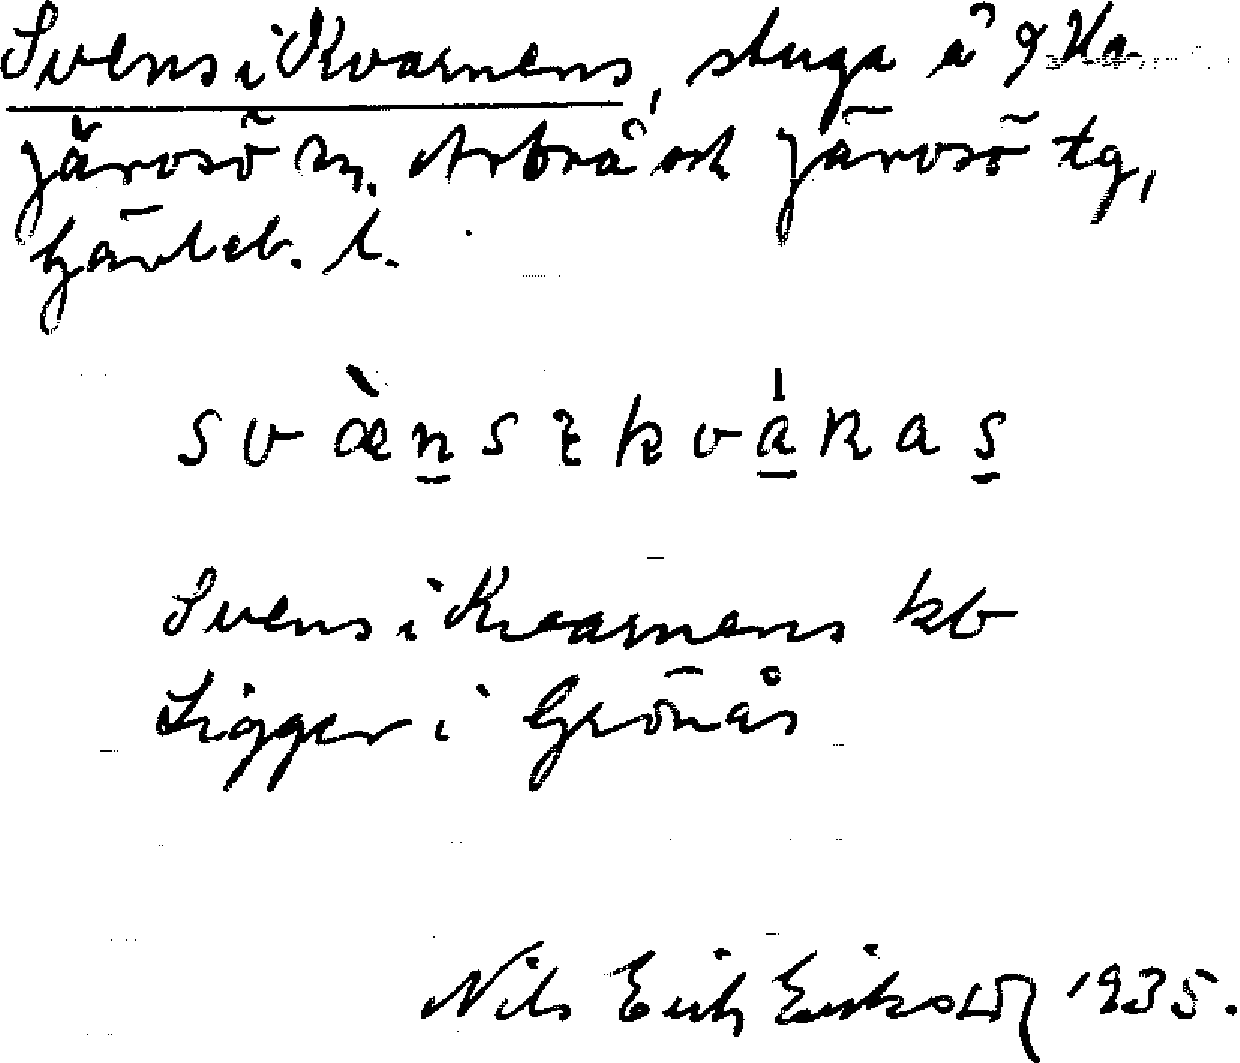 Svens i Kvarnens, stuga å 9 Ka
Järvsö sn. Arbrå och Järvsö tg,
Gävleb. l.
svæ̀n̲sɩkvá̲ʀas̲
Svens i Kvarnens kb
Ligger i Grönås
Nils Erik Eriksson 1935.